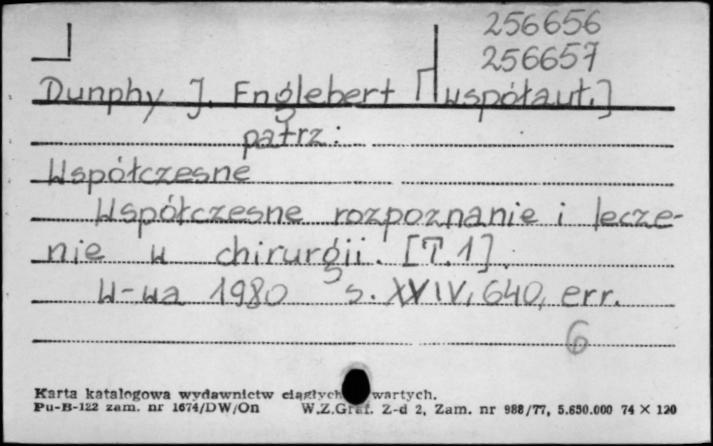 256656
256657
Dunphy J. Englebert [współaut.]
patrz:
Współczesne
Współczesne rozpoznanie i lecze-
nie w chirurgii. [T.1].
W-wa 1980 s. XVIV, 640, err.
6
Karta katalogowa wydawnictw ciągłych wartych.
Pu-B-122 zam. nr 1674/DW/On W.Z.Graf. Z-d 2, Zam. nr 988/77, 5.650.000 74 × 120